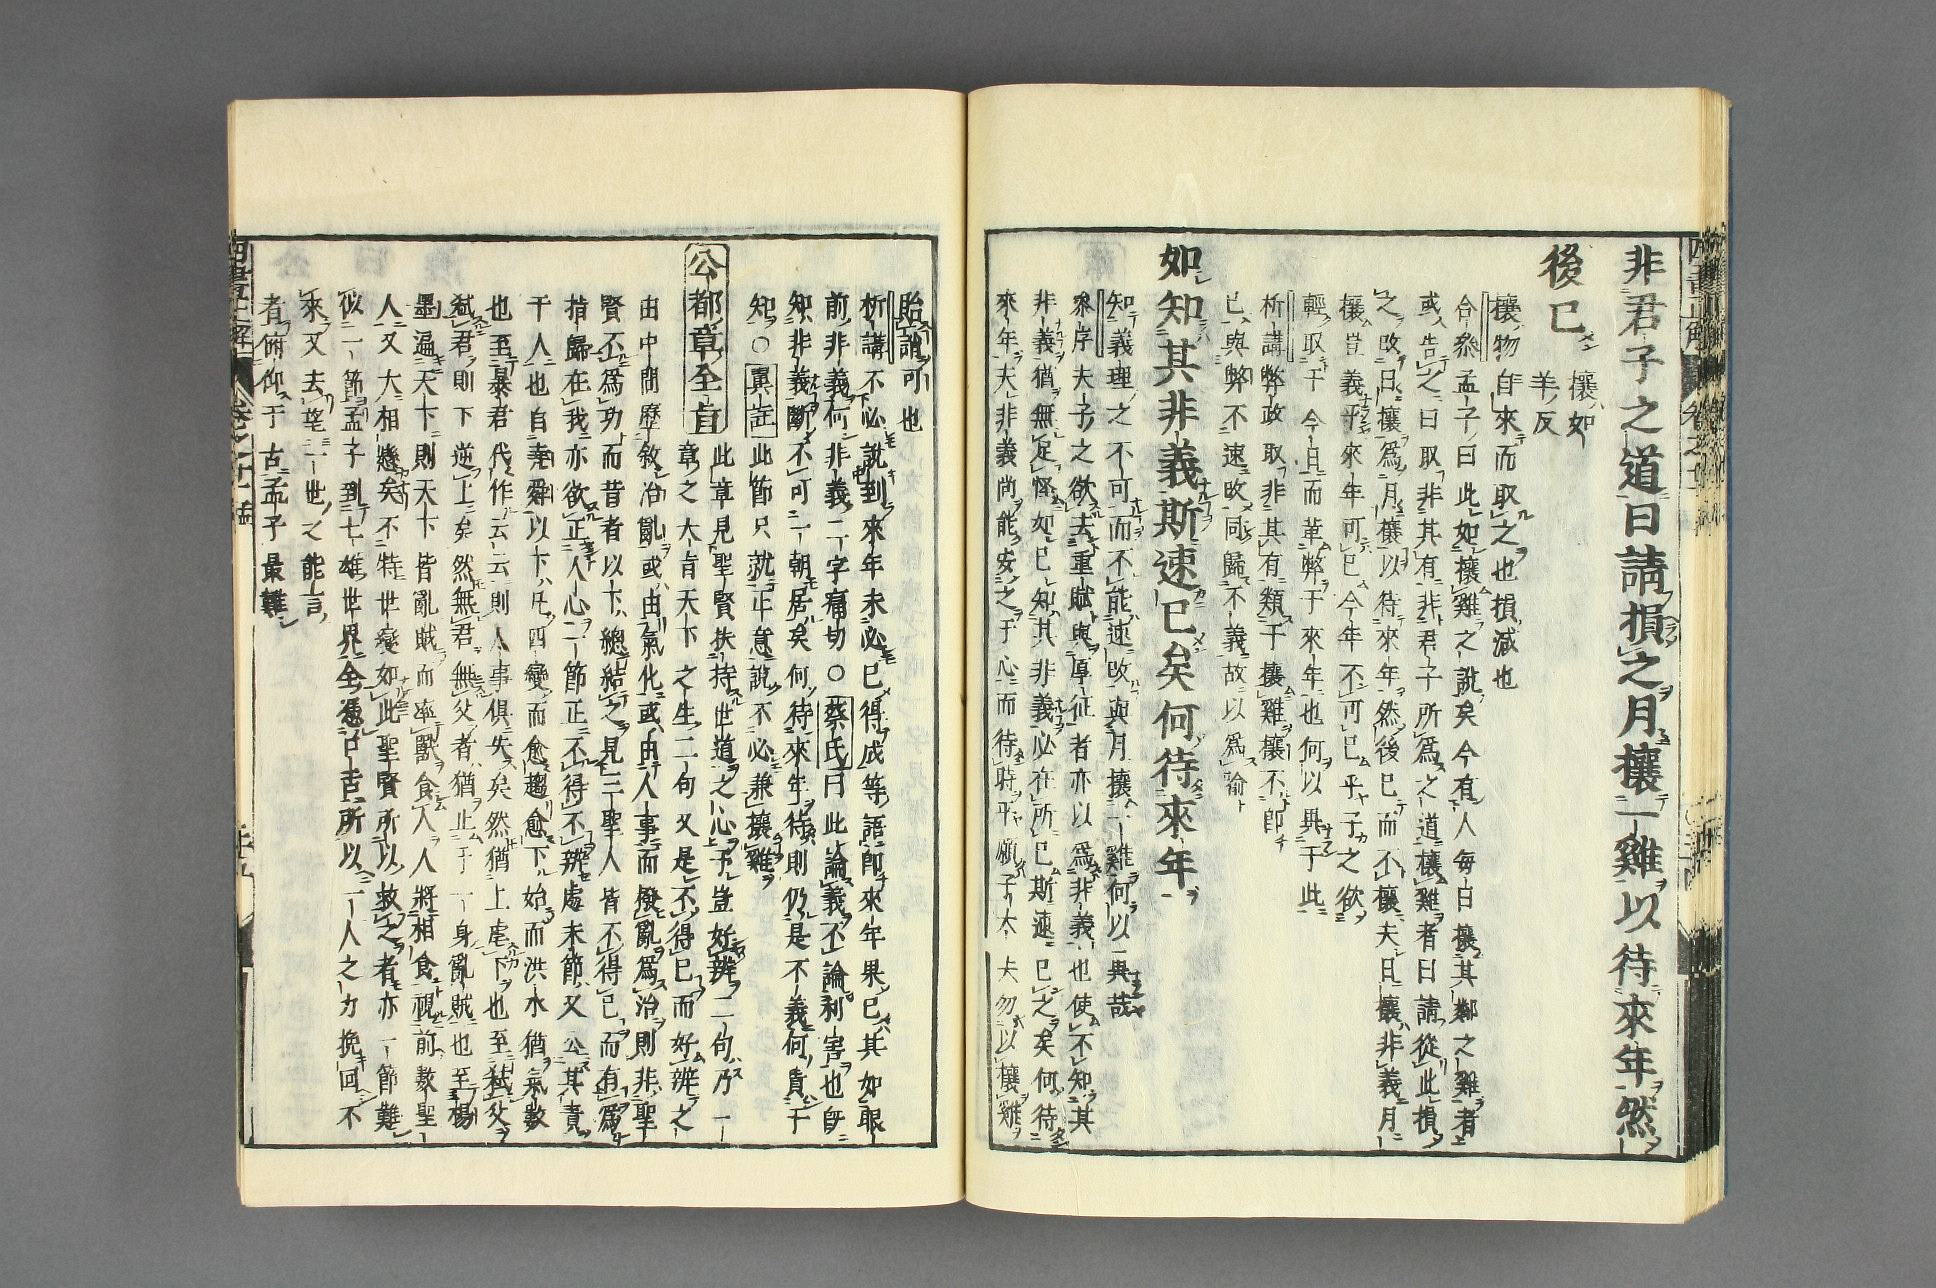 非君子之道曰請損之月攘一雞以待來年然
後已
攘如
羊反
攘物自來而取之也損減也
合參孟子曰此如攘雞之說矣今有人每日攘其鄰之雞者
或告之曰取非其有非君子所爲之道攘雞者曰請從此損
之改日攘爲月攘以待來年然後已而不攘夫日攘非義月
攘豈義乎來年可已今年不可已乎子之欲
輕取于今日而革弊于來年也何以異于此
析講弊政取非其有類于攘雞攘不即
已與弊不速改同歸不義故以爲喻
如知其非義斯速已矣何待來年
知義理之不可而不能速改與月攘一雞何以異哉
參序夫子之欲去重賦與厚征者亦以爲非義也使不知其
非義猶無足怪如已知其非義必在所已斯速已之矣何待
來年夫非義尚能安之于心而待時乎願子大夫勿以攘雞
貽誚可也
析講不必說到來年未必已得成等語即來年果已其如眼
前非義何非義二字痛切○蔡氏曰此論義不論利害也旣
知非義斷不可一朝居矣何待來年待則仍是不義何貴于
知○翼註此節只就正意說不必兼攘雞
公都章全旨
此章見聖賢扶持世道之心予豈好辨二句乃一
章之大旨天下之生二句又是不得已而好辨之
由中間歷敘治亂或由氣化或由人事而撥亂爲治則非聖
賢不爲功而昔者以下總結之見三聖人皆不得已而有爲
指歸在我亦欲正人心二節正不得不辨處未節又公其責
于人也自堯舜以下凡四變而愈趨愈下始而洪水猶氣數
也至暴君代作云云則人事俱失矣然猶上虐下也至弒父
弒君則下逆上矣然無君無父者猶止于一身亂賊也至楊
墨遍天下則天下皆亂賊而率獸食人人將相食視前數聖
人又大相懸矣不特世變如此聖賢所以救之者亦一節難
似一節孟子到七雄世界全憑口舌所以一人之力挽回不
來又去望一世之能言
者俯仰于古孟子最難